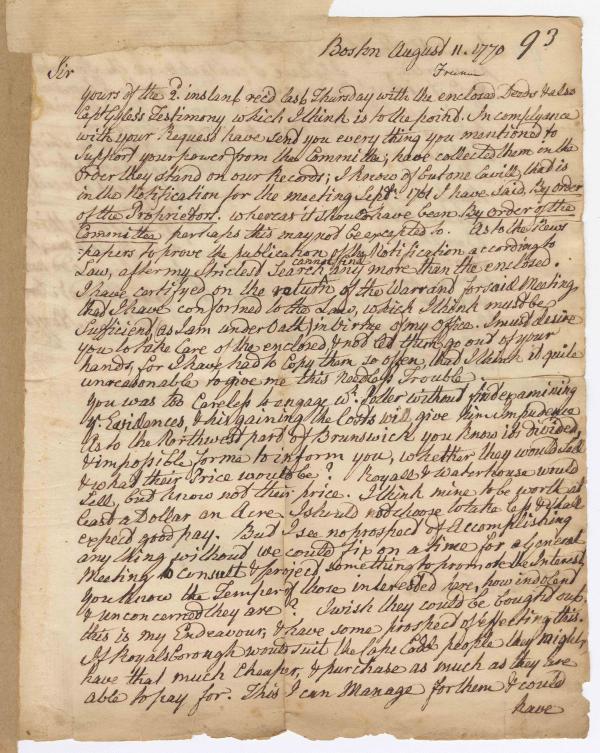 Boston August 11. 1770 93
Sir
yours of the 2d. instant rec'd last Thursday with the enclosed Deeds & also
Capt Testimony which I think is to the point. In complyance
with your Request have sent you every thing you mentioned to
Support your power from the Committee, have collected them in the
Order they stand on our Records; I know of but one Cavill, that is
in the Notification for the meeting Septr. 1761 I have said, By order
of the Proprietors. whereas it should have been By Order of the
Committee perhaps this may not be excepted to. As to the News
papers to prove the publication of the Notification according to
Law, after my Strictest Search cannot find any more than the enclosed.
I have certified on the return of the Warrant for said Meeting
that I have conformed to the Law, which I think must be
Sufficient, as I am under Oath in Virtue of my office. I must desire
you to take Care of the enclosed & not let them go out of your
hands, for I have had to Copy them so often, that I think it quite
unreasonable to give me this Needless Trouble
You was too Careless to engage wt. Potter without first examining
ye Evidences, & his gaining the Costs will give him impudence
As to the Northwest part of Brunswick you know its divided,
& impossible for me to inform you, whether they would Sell
& what their Price would be? Royall & Waterhouse would
Sell, but know not their price. I think mine to be worth at
least a Dollar an Acre I should not choose to take less & shall
expect good pay. But I see no prospect of Accomplishing
any thing without we could fix on a time for a General
Meeting to consult & project something to promote the Interest,
You know the Temper of those interested here, how indolent
& unconcerned they are? I wish they could be bought out,
this is my Endeavour, & have some prospect of effecting this.
If Royalsborough would suit the Cape Codd people they might
have that much Cheaper, & purchase as much as they are
able to pay for. This I can Manage for them & could
have